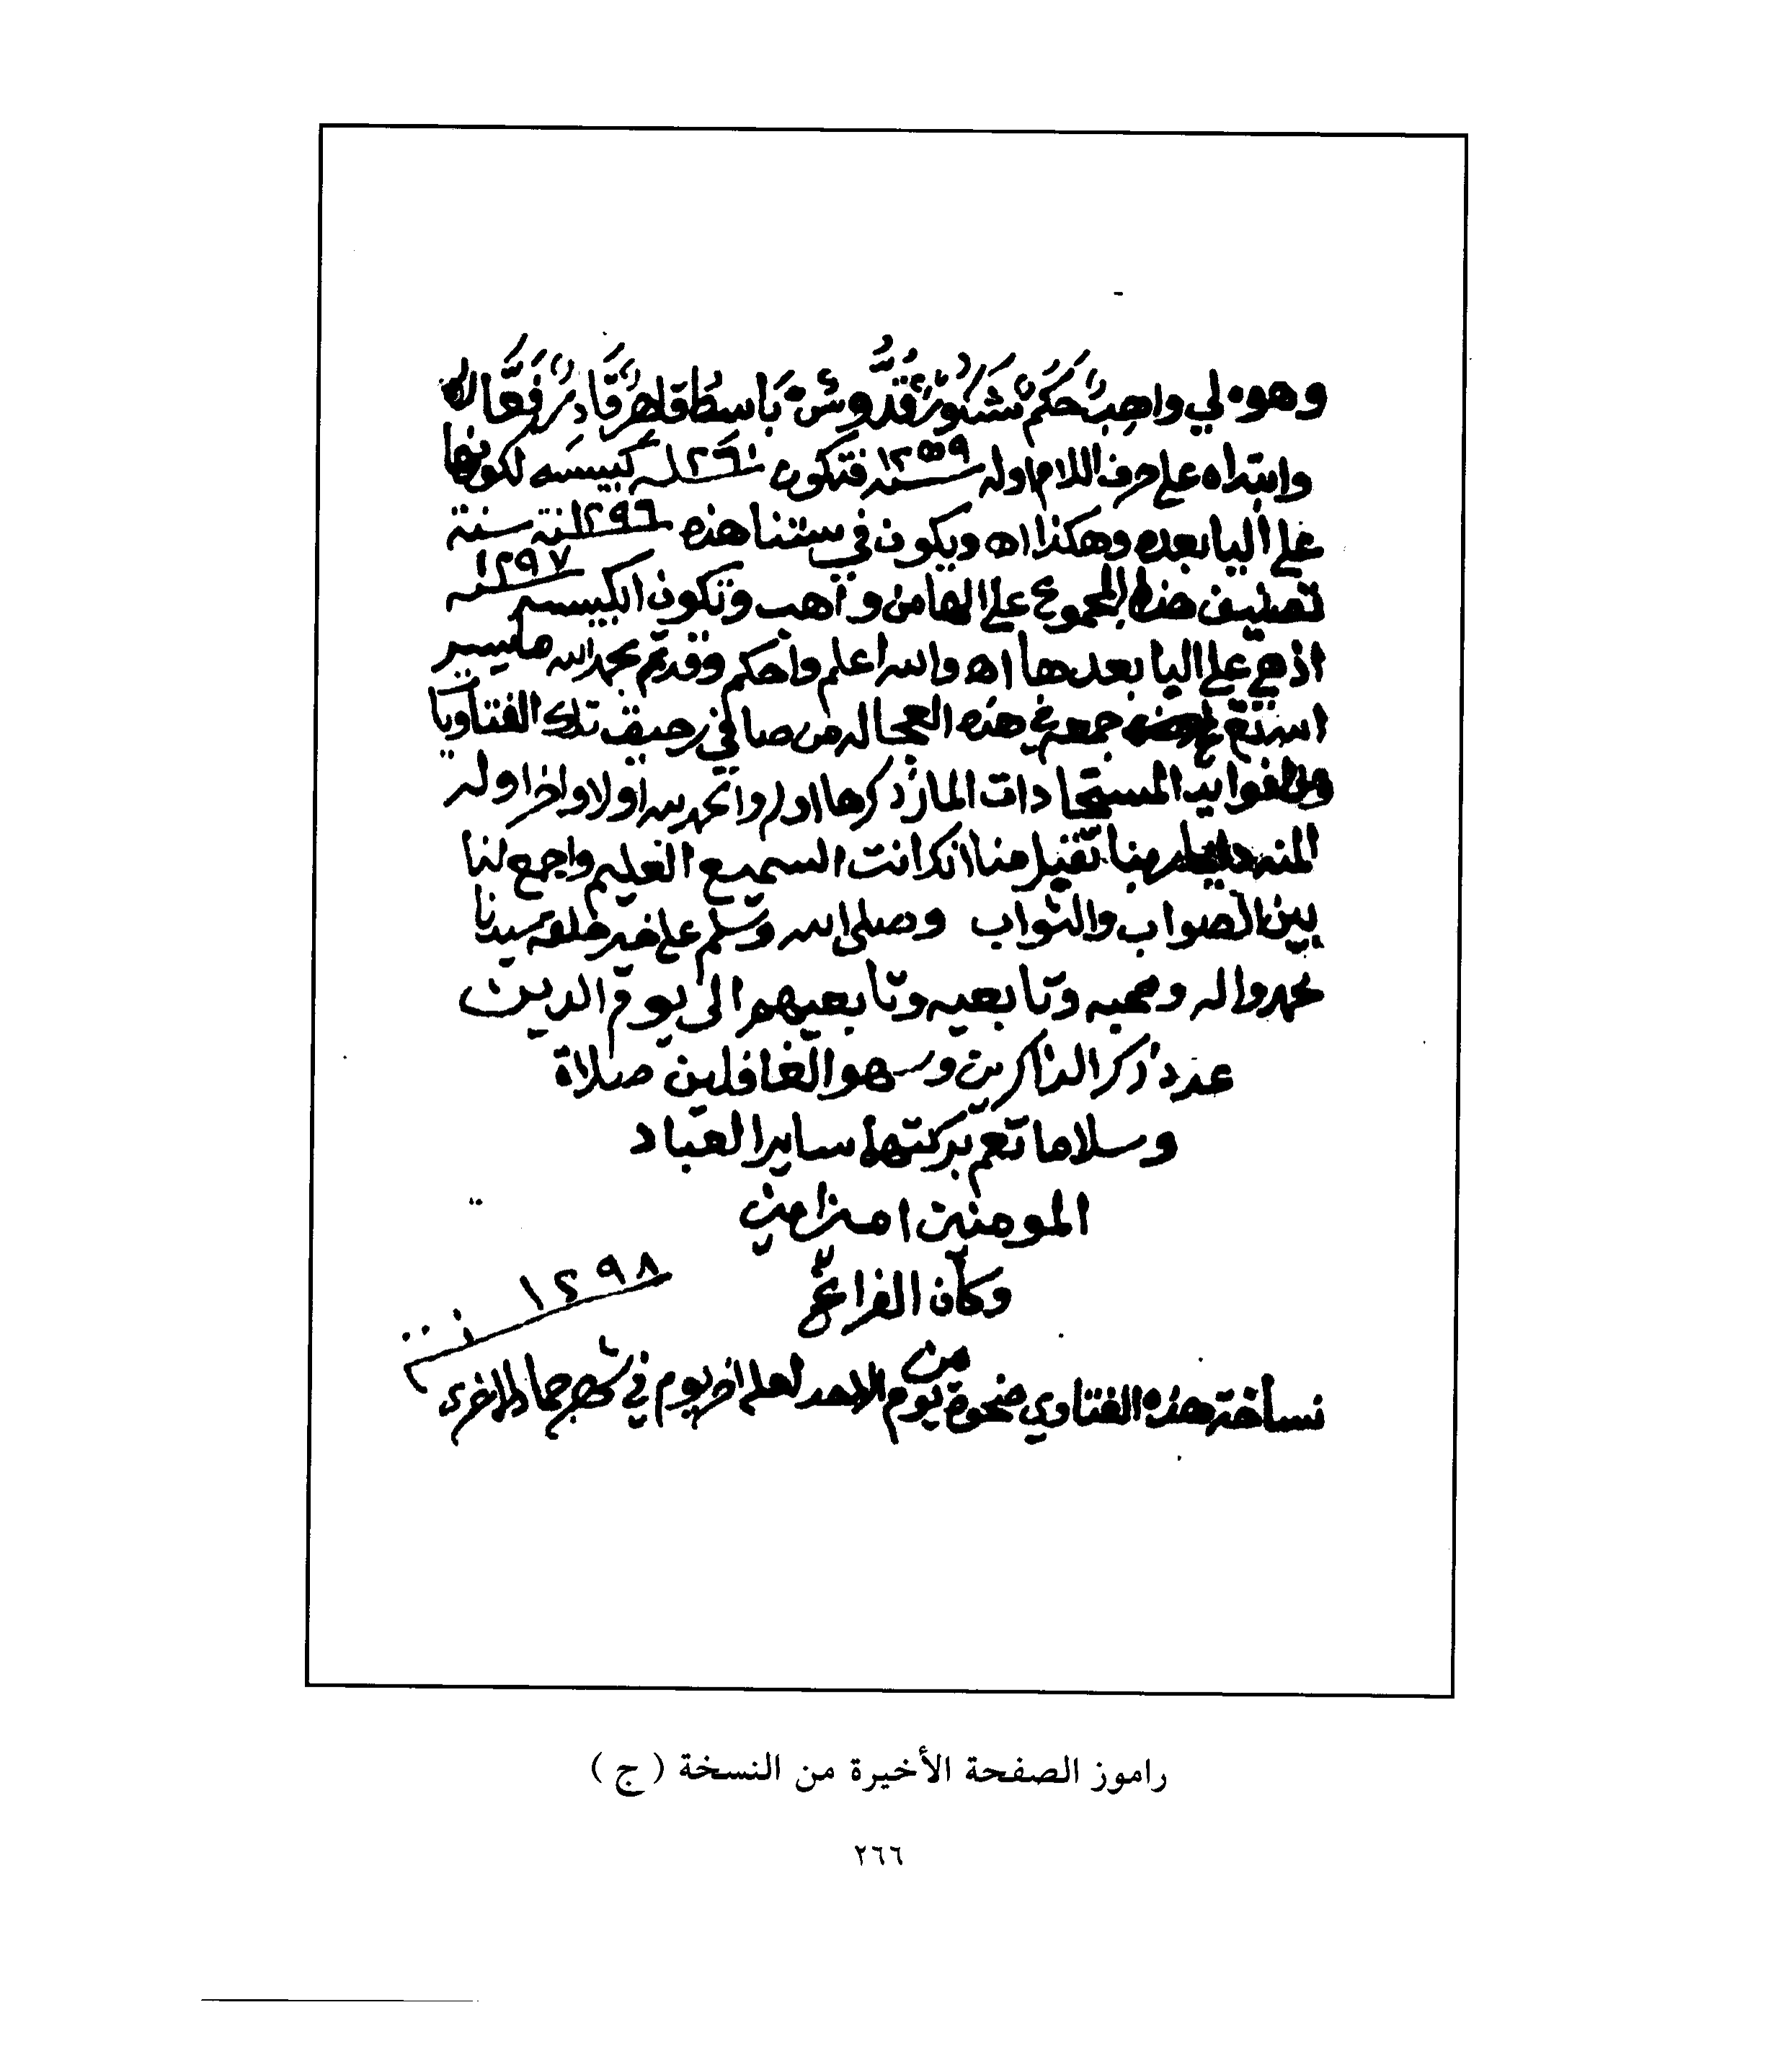 وهو لي واهب حكم شكور قدوس باسط قاهر قادر فعال اه
وابتداه على حرف اللام اوله سنة ١٢٥٩ فتكون سنة ١٢٦٠ كبيسه لكونها
على اليا بعده وهكذا اه ويكون في سنتنا هذه سنة ١٢٩٦ سنة
تصنيف هذا المجموع على الها من واهب وتكون الكبيسه سنة ١٢٩٧
اذ هي على اليا بعدها اه والله اعلم واحكم وقد تم بحمد الله ما يسر
جمعه في هذه العجاله من صافي رحيق تلك الفتاويا
والفوايد المستجادات المار ذكرها اول والحمد لله اولا واخرا وله
المنه ربنا تقبل منا انك انت السميع العليم واجمع لنا
بين الصواب والثواب وصلى الله وسلم على خير خلقه سيدنا
محمد واله وصحبه وتابعيه وتابعيهم الى يوم الدين
عدد ذكر الذاكرين وسهو الغافلين صلاة
وسلاما تعم بركتها ساير العباد
المومنين امين امين
وكان الفراغ
من
نساخة هذه الفتاوي ضحوة يوم الاحد لعله اخر يوم في شهر جماد الاخرى
سنة ١٢٩٨
راموز الصفحة الأخيرة من النسخة ( ج )
٢٦٦